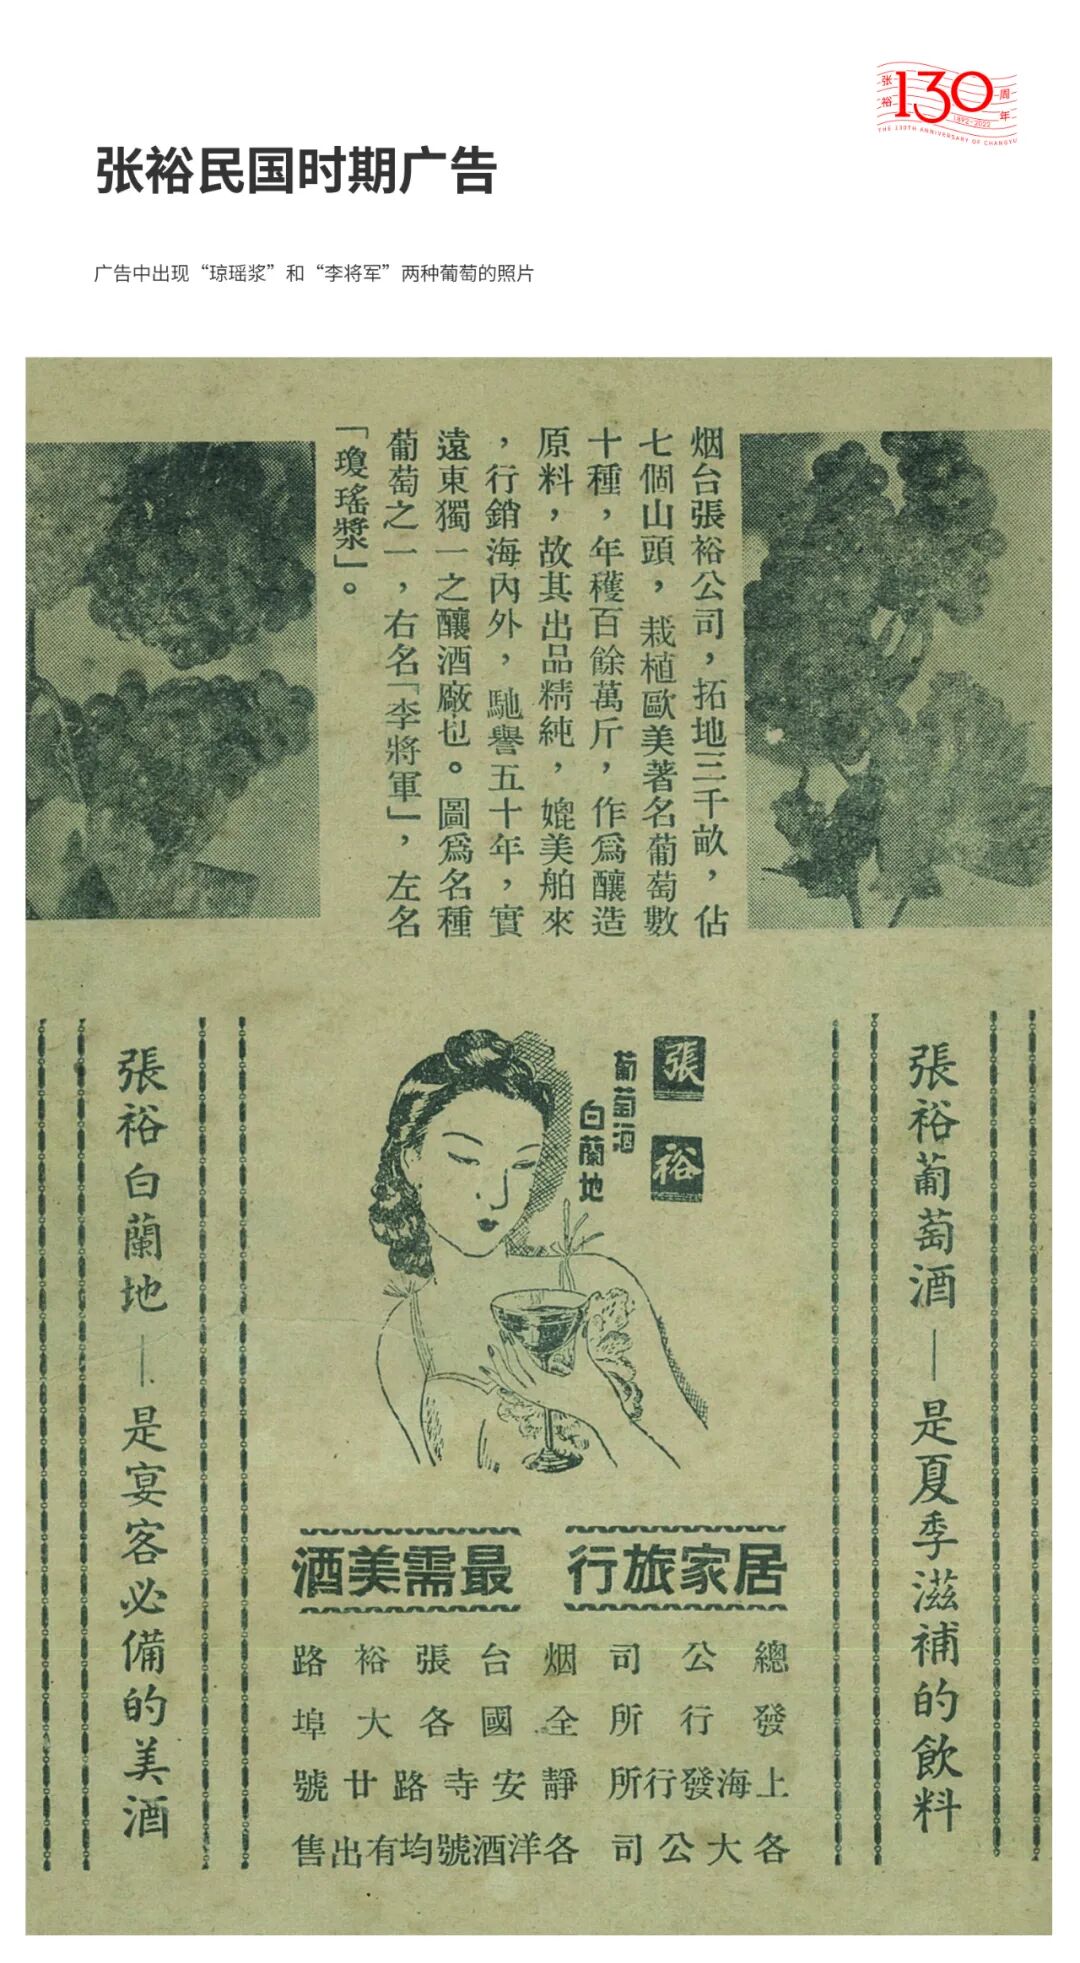 张裕
130
周年
1892-2022
THE 130TH ANNIVERSARY OF CHANGYU
张裕民国时期广告
广告中出现“琼瑶浆”和“李将军”两种葡萄的照片
烟台張裕公司，拓地三千畝，佔
七個山頭，栽植歐美著名葡萄數
十種，年穫百餘萬斤，作爲釀造
原料，故其出品精純，媲美舶來
，行銷海內外，馳譽五十年，實
遠東獨一之釀酒廠也。圖爲名種
葡萄之一，右名「李將軍」，左名
「瓊瑤漿」。
張裕葡萄酒—是夏季滋補的飲料
張裕
葡萄酒
白蘭地
居家旅行 最需美酒
總公司 烟台張裕路
發行所 全國各大埠
上海發行所 靜安寺路廿號
各大公司 各洋酒號均有出售
張裕白蘭地—是宴客必備的美酒